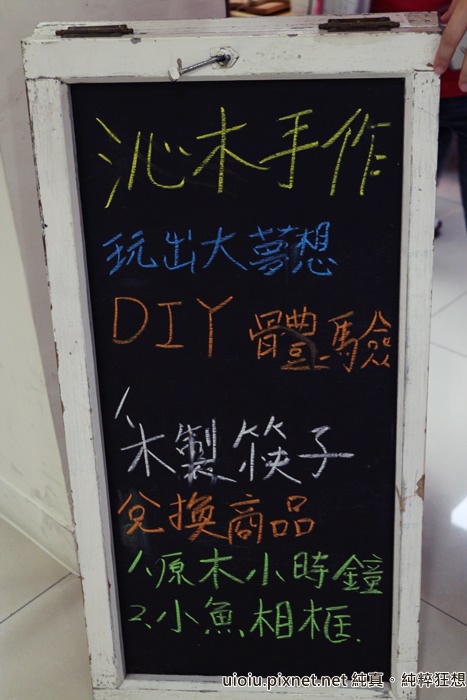 沁木手作
玩出大夢想
DIY 體驗
1、
木製筷子
兌換商品
1、原木小時鐘
2、小魚相框.
uioiu.pixnet.net 純真。純粹狂想